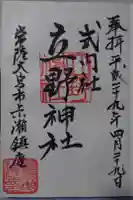 奉拝 平成二十九年四月二十九日
式内社
立野神社
常陸大宮市上小瀬鎮座